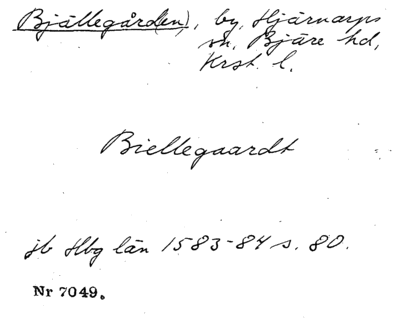 Bjällegård(en), by, Hjärnarps
sn, Bjäre hd,
Krst. l.
Biellegaardt
jb Hbg län 1583-84 s. 80.
Nr 7049.